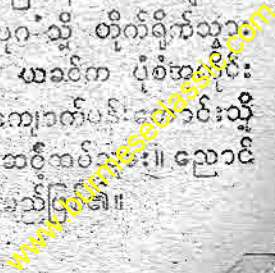 ပုဂံသို့ တိုက်ရိုက်သွား
ယခင်က ပုံစံအတိုင်း
ကျောက်ပန်းတောင်းသို့
ဆင့် ညောင်
မည်ဖြစ်၏။
www.burmeseclassic.com